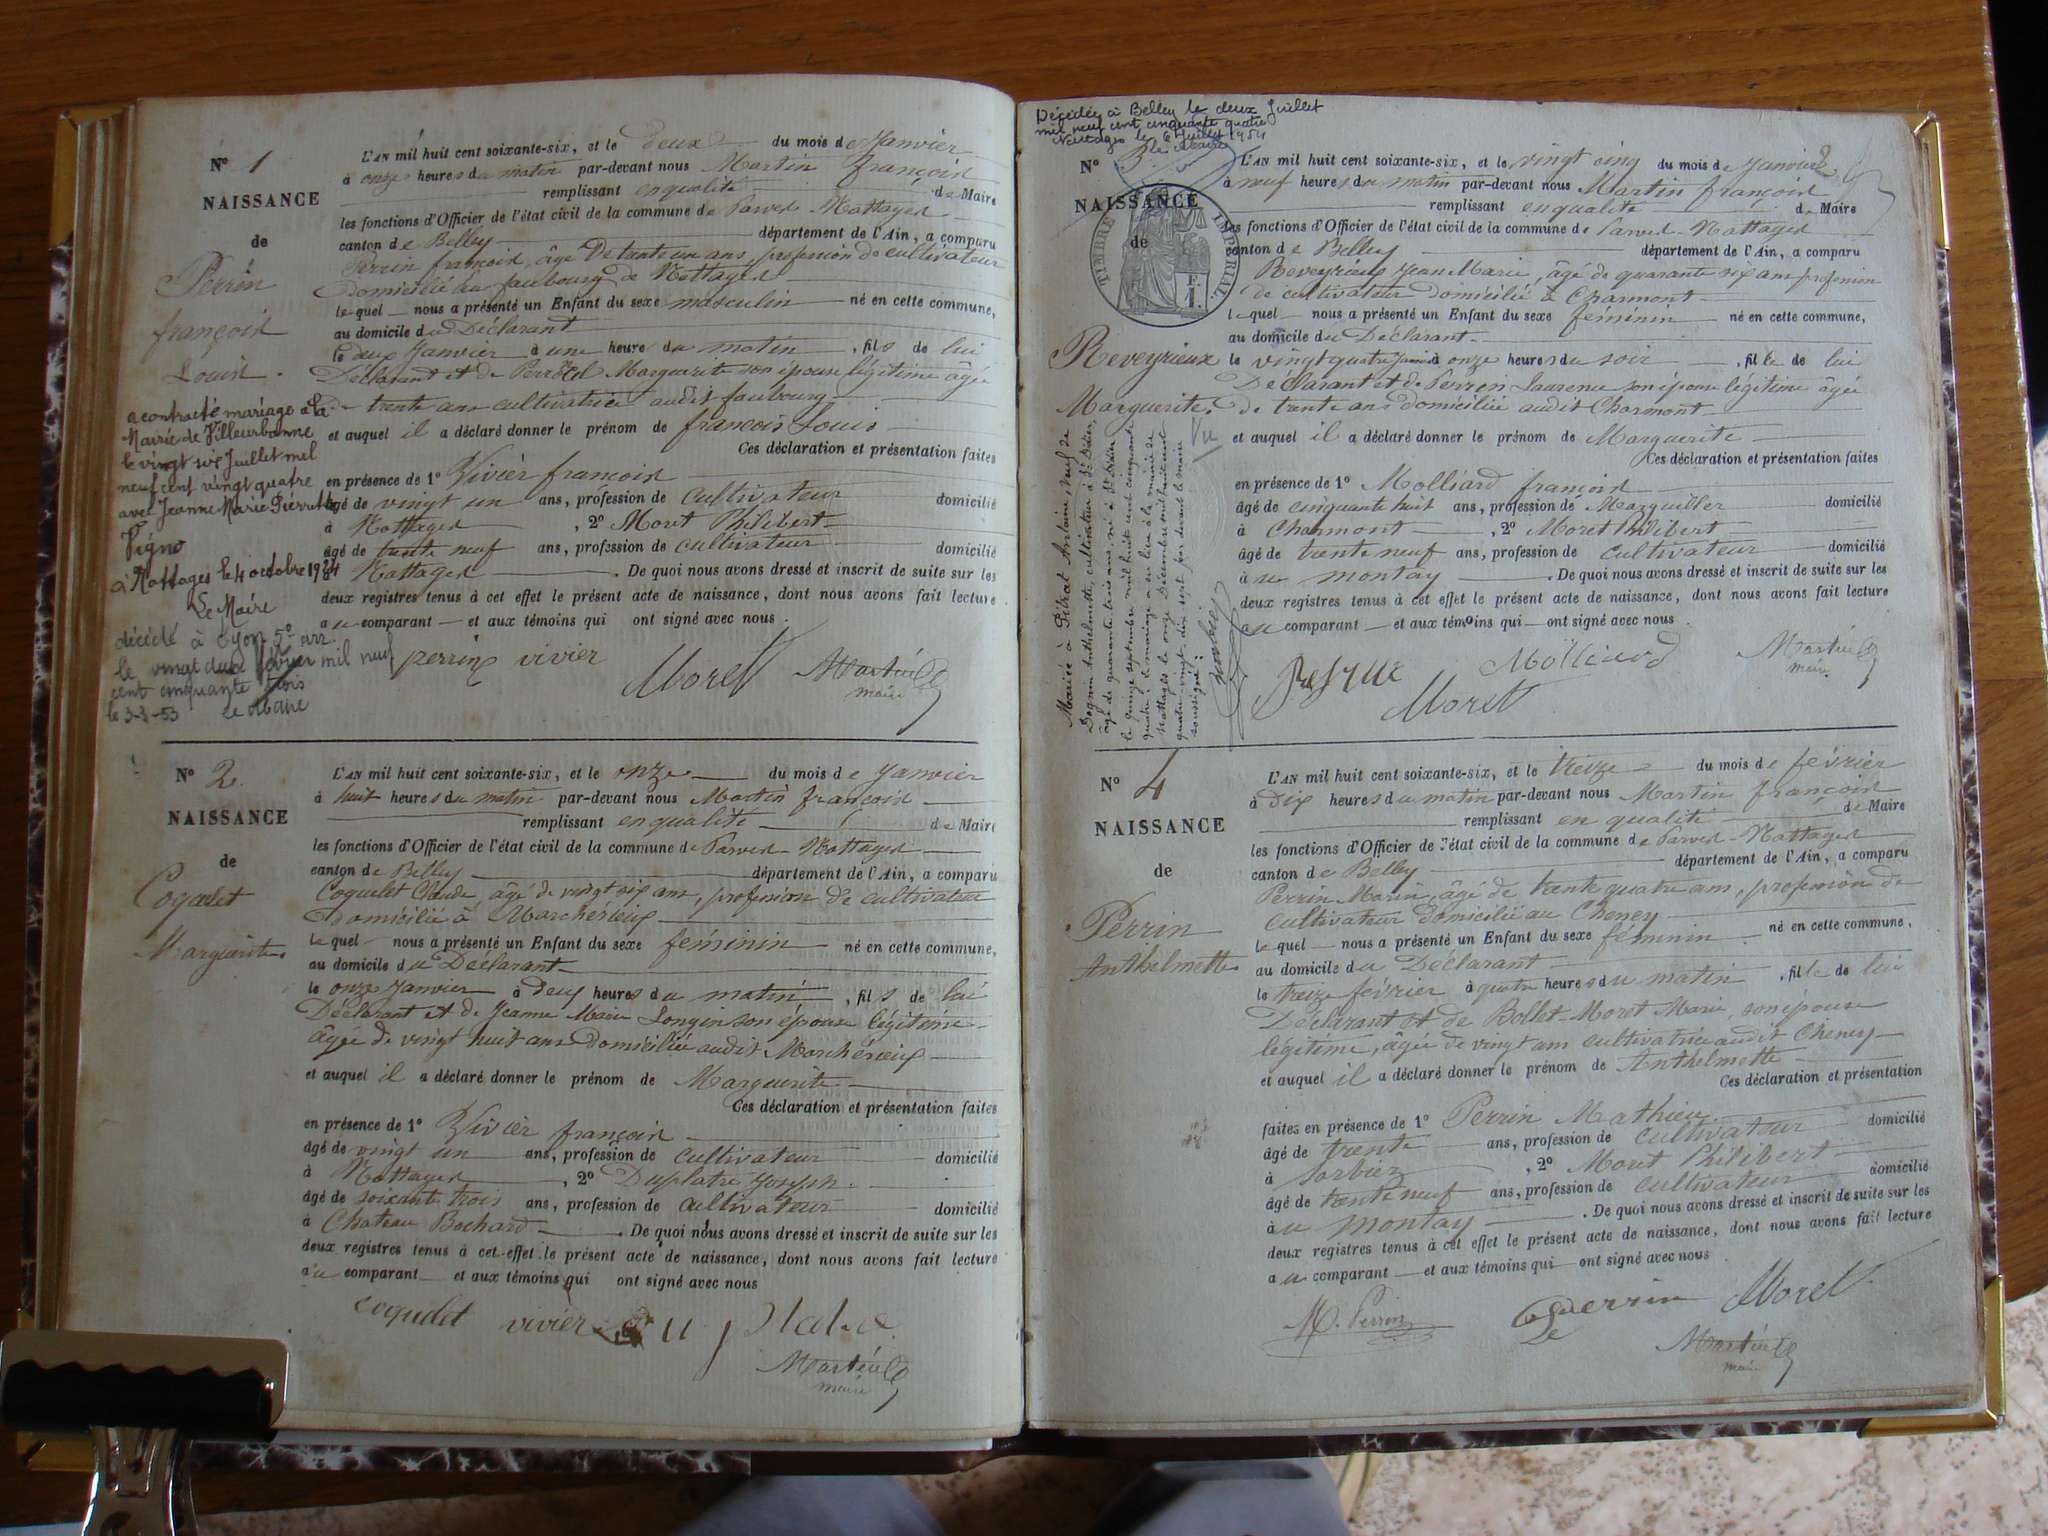 N° 1
NAISSANCE
de
Perrin
françois
Louis.
a contracté mariage à la
Mairie de Villeurbanne
le vingt six Juillet mil
neuf cent vingt quatre
avec Jeanne Marie Pierrette
Vigno
à Nattages le 4 octobre 1924
Le Maire
décédé à Lyon 5e arr.
le vingt deux février mil neuf
cent cinquante trois
le 3-3-53 Le Maire
L'AN mil huit cent soixante-six, et le deux du mois de Janvier
à onze heures du matin par-devant nous Martin françois
remplissant en qualité de Maire
les fonctions d'Officier de l'état civil de la commune de Parves-Nattages
canton de Belley département de l'Ain, a comparu
Perrin françois, âgé De trente un ans, profession de cultivateur
domicilié au faubourg de Nattages
lequel nous a présenté un Enfant du sexe masculin né en cette commune,
au domicile du Déclarant
le deux Janvier à une heure du matin, fils de lui
Déclarant et de Marguerite son épouse légitime âgée
de trente ans cultivatrice audit faubourg
et auquel il a déclaré donner le prénom de françois Louis
Ces déclaration et présentation faites
en présence de 1° Vivier françois
âgé de vingt un ans, profession de cultivateur domicilié
à Nattages, 2° Moret Philibert
âgé de trente neuf ans, profession de cultivateur domicilié
à Nattages. De quoi nous avons dressé et inscrit de suite sur les
deux registres tenus à cet effet le présent acte de naissance, dont nous avons fait lecture
au comparant et aux témoins qui ont signé avec nous.
perrin vivier Moret Martin
maire
N° 2.
NAISSANCE
de
Coquelet
Marguerite.
L'AN mil huit cent soixante-six, et le onze du mois de Janvier
à huit heures du matin par-devant nous Martin françois
remplissant en qualité de Maire
les fonctions d'Officier de l'état civil de la commune de Parves-Nattages
canton de Belley département de l'Ain, a comparu
Coquelet Claude, âgé de vingt six ans, profession de cultivateur
domicilié à Marchérieux
lequel nous a présenté un Enfant du sexe féminin né en cette commune,
au domicile du Déclarant
le onze Janvier à deux heures du matin, fils de lui
Déclarant et de Jeanne Marie Longin son épouse légitime
âgée de vingt huit ans Domiciliée audit Marchérieux
et auquel il a déclaré donner le prénom de Marguerite
Ces déclaration et présentation faites
en présence de 1° Vivier françois
âgé de vingt un ans, profession de cultivateur domicilié
à Nattages, 2° Duplatre Joseph.
âgé de soixante trois ans, profession de cultivateur domicilié
à Chateau Bochard. De quoi nous avons dressé et inscrit de suite sur les
deux registres tenus à cet effet le présent acte de naissance, dont nous avons fait lecture
au comparant et aux témoins qui ont signé avec nous
coquelet vivier
Martin
maire
Décédée à Belley le deux Juillet
mil neuf cent cinquante quatre
Nattages le 6 Juillet 1954
le Maire
N° 3
NAISSANCE
de
TIMBRE IMPERIAL
F.
1.
Reveyrieux
Marguerite.
Vu
Mariée à Pétrat Antoine, veuf de
Dognin Anthelmette, cultivateur à St Didier,
âgé de quarante trois ans, né à St
le quinze septembre mil huit cent cinquante
quatre, le mariage a eu lieu à la mairie de
Nattages le onze Décembre mil huit cent
quatre-vingt dix sept par devant le maire
soussigné:
L'AN mil huit cent soixante-six, et le vingt cinq du mois de Janvier
à neuf heures du matin par-devant nous Martin françois
remplissant en qualité de Maire
les fonctions d'Officier de l'état civil de la commune de Parves-Nattages
canton de Belley département de l'Ain, a comparu
Reveyrieux Jean Marie, âgé de quarante six ans profession
de cultivateur domicilié à Charmont
lequel nous a présenté un Enfant du sexe féminin né en cette commune,
au domicile du Déclarant
le vingt quatre Janvier à onze heures du soir, fille de lui
Déclarant et de Perrin Laurence son épouse légitime âgée
de trente ans domiciliée audit Charmont
et auquel il a déclaré donner le prénom de Marguerite
Ces déclaration et présentation faites
en présence de 1° Molliard françois
âgé de cinquante huit ans, profession de Marguiller domicilié
à Charmont, 2° Moret Philibert
âgé de trente neuf ans, profession de cultivateur domicilié
à u montay. De quoi nous avons dressé et inscrit de suite sur les
deux registres tenus à cet effet le présent acte de naissance, dont nous avons fait lecture
au comparant et aux témoins qui ont signé avec nous
Molliard Martin
maire
Moret
N° 4
NAISSANCE
de
Perrin
Anthelmette
L'AN mil huit cent soixante-six, et le treize du mois de février
à Dix heures du matin par-devant nous Martin françois
remplissant en qualité de Maire
les fonctions d'Officier de l'état civil de la commune de Parves-Nattages
canton de Belley département de l'Ain, a comparu
Perrin Marin, âgé de trente quatre ans, profession de
cultivateur domicilié au Cheney
lequel nous a présenté un Enfant du sexe féminin né en cette commune,
au domicile du Déclarant
le treize février à quatre heures du matin, fille de lui
Déclarant et de Bollet-Moret Marie, son épouse
légitime, âgée de vingt ans cultivatrice audit Cheney
et auquel il a déclaré donner le prénom de Anthelmette
Ces déclaration et présentation
faites en présence de 1° Perrin Mathieu
âgé de trente ans, profession de cultivateur domicilié
à Sorbier, 2° Moret Philibert
âgé de trente neuf ans, profession de cultivateur domicilié
à u montay. De quoi nous avons dressé et inscrit de suite sur les
deux registres tenus à cet effet le présent acte de naissance, dont nous avons fait lecture
au comparant et aux témoins qui ont signé avec nous
M. Perrin Perrin Moret
Martin
maire